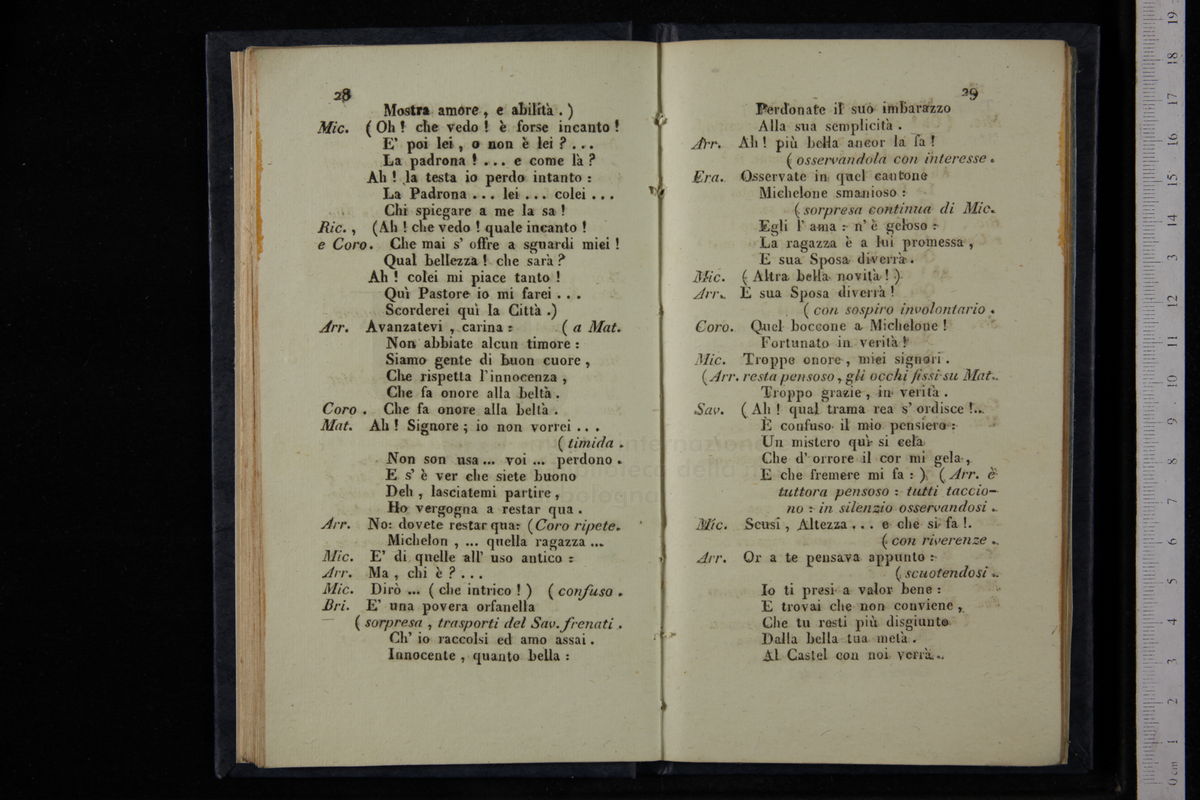 28
Mostra amore , e abilità . )
Mic. ( Oh ! che vedo ! è forse incanto !
E' poi lei , o non è lei ? . . .
La padrona ! . . . e come là ?
Ah ! la testa io perdo intanto :
La Padrona . . . lei . . . colei . . .
Chi spiegare a me la sa !
Ric. , (Ah ! che vedo ! quale incanto !
e Coro. Che mai s' offre a sguardi miei !
Qual bellezza ! che sarà ?
Ah ! colei mi piace tanto !
Quì Pastore io mi farei . . .
Scorderei quì la Città .)
Arr. Avanzatevi , carina : ( a Mat.
Non abbiate alcun timore :
Siamo gente di buon cuore ,
Che rispetta l'innocenza ,
Che fa onore alla beltà .
Coro . Che fa onore alla beltà .
Mat. Ah ! Signore ; io non vorrei . . .
( timida .
Non son usa ... voi ... perdono .
E s' è ver che siete buono
Deh , lasciatemi partire ,
Ho vergogna a restar qua .
Arr. No: dovete restar qua: (Coro ripete.
Michelon , ... quella ragazza ...
Mic. E' di quelle all' uso antico :
Arr. Ma , chi è ? . . .
Mic. Dirò ... ( che intrico ! ) ( confuso .
Bri. E' una povera orfanella
( sorpresa , trasporti del Sav. frenati .
Ch' io raccolsi ed amo assai .
Innocente , quanto bella :
29
Perdonate il suo imbarazzo
Alla sua semplicità .
Arr. Ah ! più bella ancor la fa !
( osservandola con interesse .
Era. Osservate in quel cantone
Michelone smanioso :
( sorpresa continua di Mic.
Egli l' ama : n' è geloso :
La ragazza è a lui promessa ,
E sua Sposa diverrà .
Mic. ( Altra bella novità ! )
Arr. E sua Sposa diverrà !
( con sospiro involontario .
Coro. Quel boccone a Michelone !
Fortunato in verità !
Mic. Troppo onore , miei signori .
(Arr. resta pensoso , gli occhi fissi su Mat.
Troppo grazie , in verità .
Sav. ( Ah ! qual trama rea s' ordisce !..
È confuso il mio pensiero :
Un mistero quì si cela
Che d' orrore il cor mi gela ,
E che fremere mi fa : ) ( Arr. è
tuttora pensoso : tutti taccio-
no : in silenzio osservandosi .
Mic. Scusi , Altezza . . . e che si fa !.
( con riverenze .
Arr. Or a te pensava appunto :
( scuotendosi .
Io ti presi a valor bene :
E trovai che non conviene ,
Che tu resti più disgiunto
Dalla bella tua metà .
Al Castel con noi verrà..